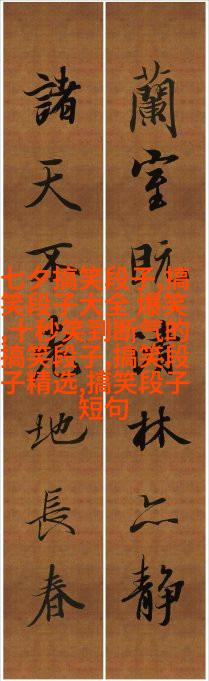 蘭室林靜
諸天不地長春
七夕搞笑段子,搞
笑段子大全 爆笑
,十秒笑到断气的
搞笑段子,搞笑段
子精选,搞笑段子
短句